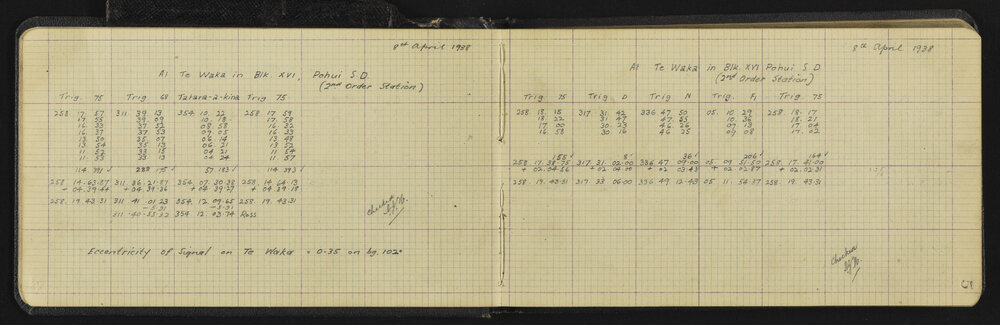 8th April 1938
At Te Waka in Blk XVI, Pohui S.D.
(2nd Order Station)
Trig 75 Trig 68 Taiara-a-kina Trig 75
258 17 57 311 39 13 354 10 22 258 17 59
17 53 39 09 10 18 17 58
16 39 37 52 08 58 16 32
16 37 37 53 09 05 16 33
13 50 35 07 06 14 13 48
13 54 35 13 06 21 13 52
11 52 33 15 04 21 11 54
11 55 33 13 04 24 11 57
114 391 √ 195 √ 57 183 √ 114 393 √
258 14 63·87 311 36 21·87 354 07 30·38 258 14 64·13
+ 04·39·44 + 04 39·36 + 04 39·27 + 04 39·18
258 19 43·31 311 41 01·23 354 12 09·65 258 19 43·31
—5·31 —5·31
311·40·55·32 354 12 03·74 Ross
Checked
Eccentricity of Signal on Te Waka = 0·35 on bg. 102°
8th April 1938
At Te Waka in Blk XVI Pohui S.D.
(2nd Order Station)
Trig 75 Trig D Trig N Trig Fi Trig 75
258 18 18 317 31 42 336 47 50 05 10 29 258 18 17
18 22 31 47 47 55 10 36 18 21
17 00 30 23 46 26 09 13 17 04
16 58 30 16 46 25 09 08 17 02
155 √ 8 √ 36 √ 206 √ 164 √
258 17 38·75 317 31 02·00 336 47 09·00 05 09 51·50 258 17 41·00
+ 02 04·56 + 02 04·00 + 02 03·43 + 02 02·87 + 02 02·31
258 19 43·31 317 33 06·00 336 49 12·43 05 11 54·37 258 19 43·31
Checked
5